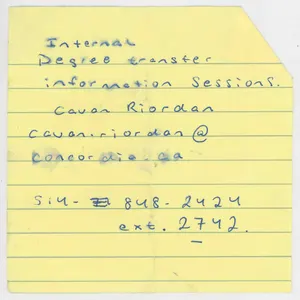 Internal
Degree transfer
information Sessions.
Cavan Riordan
cavan.riordan@
concordia.ca
514- 848- 2424
ext. 2742.